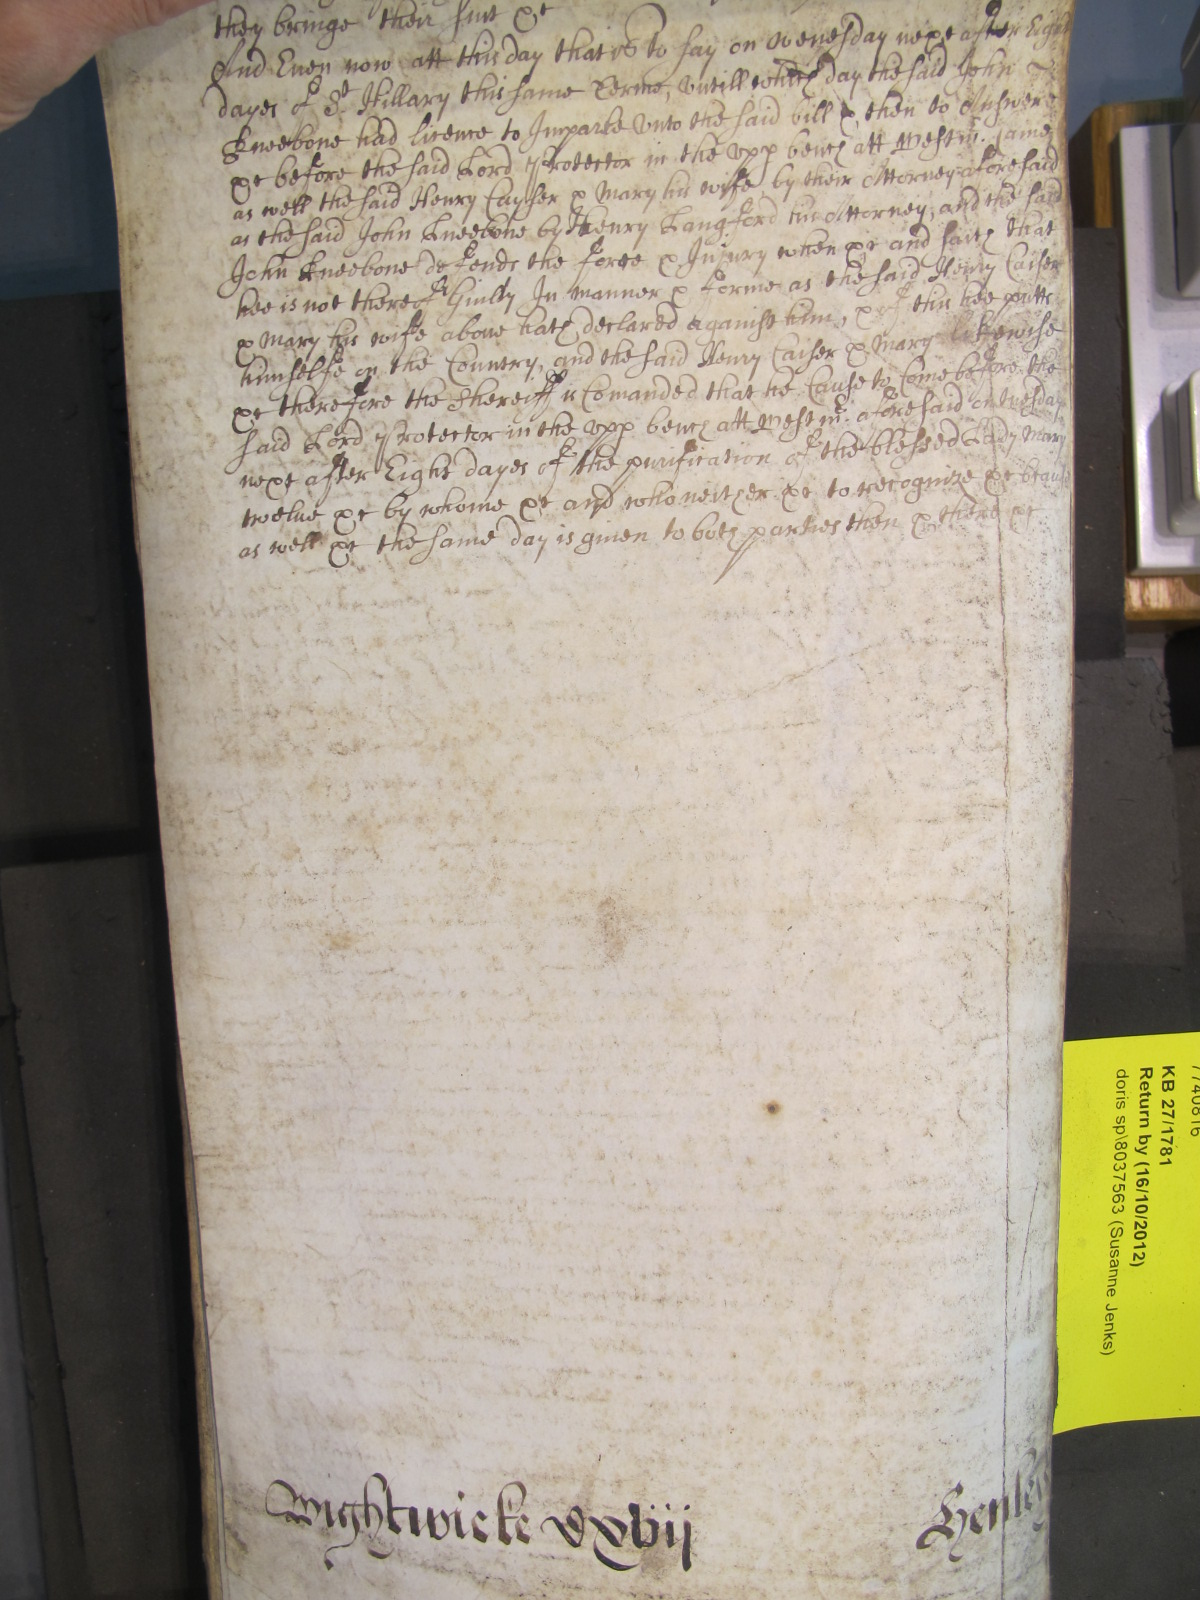 they bringe their suit &c
And Euen now att this day that is to say on Wenesday next after Eight
dayes of St Hillary this same Terme, vntill which day the said John
Kneebone had licence to Imparle vnto the said bill & then to Answer
&c before the said Lord Protector in the vpp bench att Westmr. came
as well the said Henry Cayser & Mary his wife, by their Attorney aforesaid
as the said John Kneebone by Henry Langford his Attorney, and the said
John Kneebone defends the force & Injury when &c and saith that
hee is not thereof Guilty In manner & forme as the said Henry Caiser
& Mary his wife aboue hath declared against him, & of this hee putts
himselfe on the Country, and the said Henry Caiser & Mary likewise
&c therefore the Shereiff is Comanded that he Cause to Come before the
said Lord Protector in the vpp bench att Westmr. aforesaid on Tuesday
next after Eight dayes of the purification of the blessed Lady Mary
twelue &c by whome &c and who neither &c to recognize &c because
as well &c the same day is giuen to both parties then & there &c
Wightwicke Henley
7740816
KB 27/1781
Return by (16/10/2012)
doris sp\8037563 (Susanne Jenks)